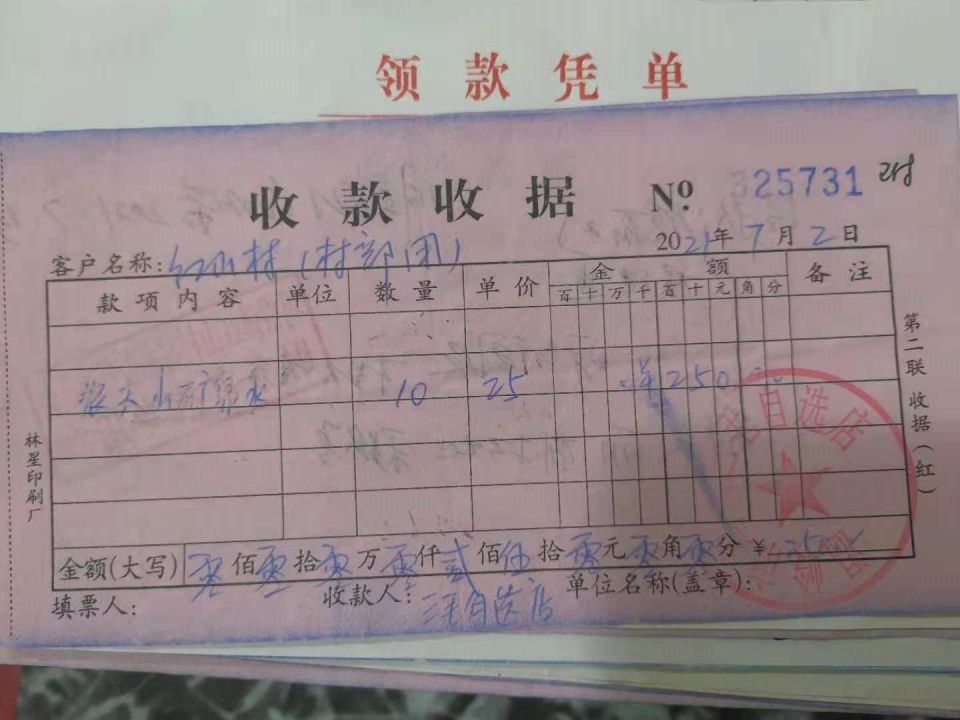 领款凭单
收款收据 № 325731
2021年7月2日
客户名称: 红山村(村部用)
款项内容 单位 数量 单价 金额 备注
百 十 万 千 百 十 元 角 分
大山矿泉水 10 25 ¥ 2 5 0 0 0
金额(大写) 零佰零拾零万零仟贰佰伍拾零元零角零分 ¥ 250
填票人: 收款人: 三毛自选店 单位名称(盖章):
第二联 收据(红)
林星印刷厂
自选店